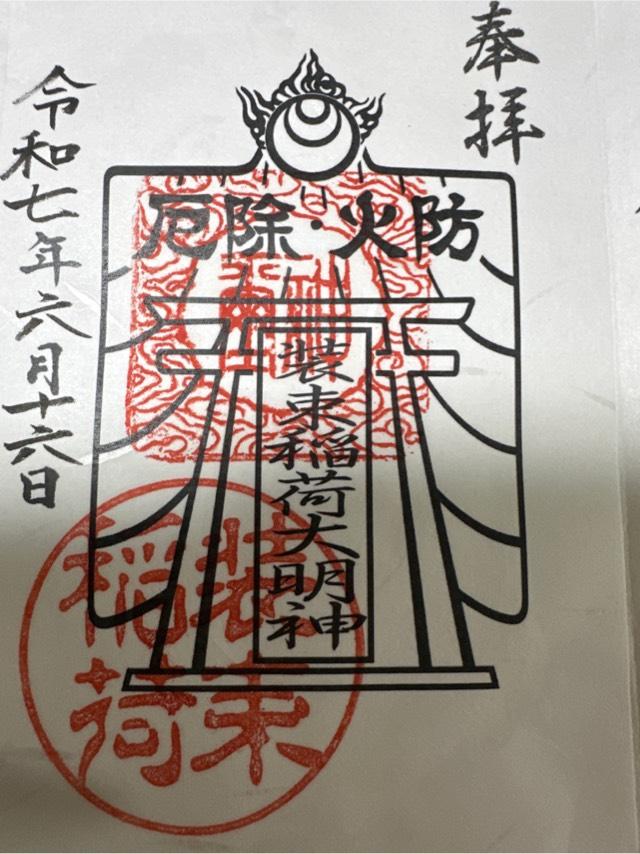 奉拝
厄除・火防
装束稲荷大明神
令和七年六月十六日
装束
稲荷